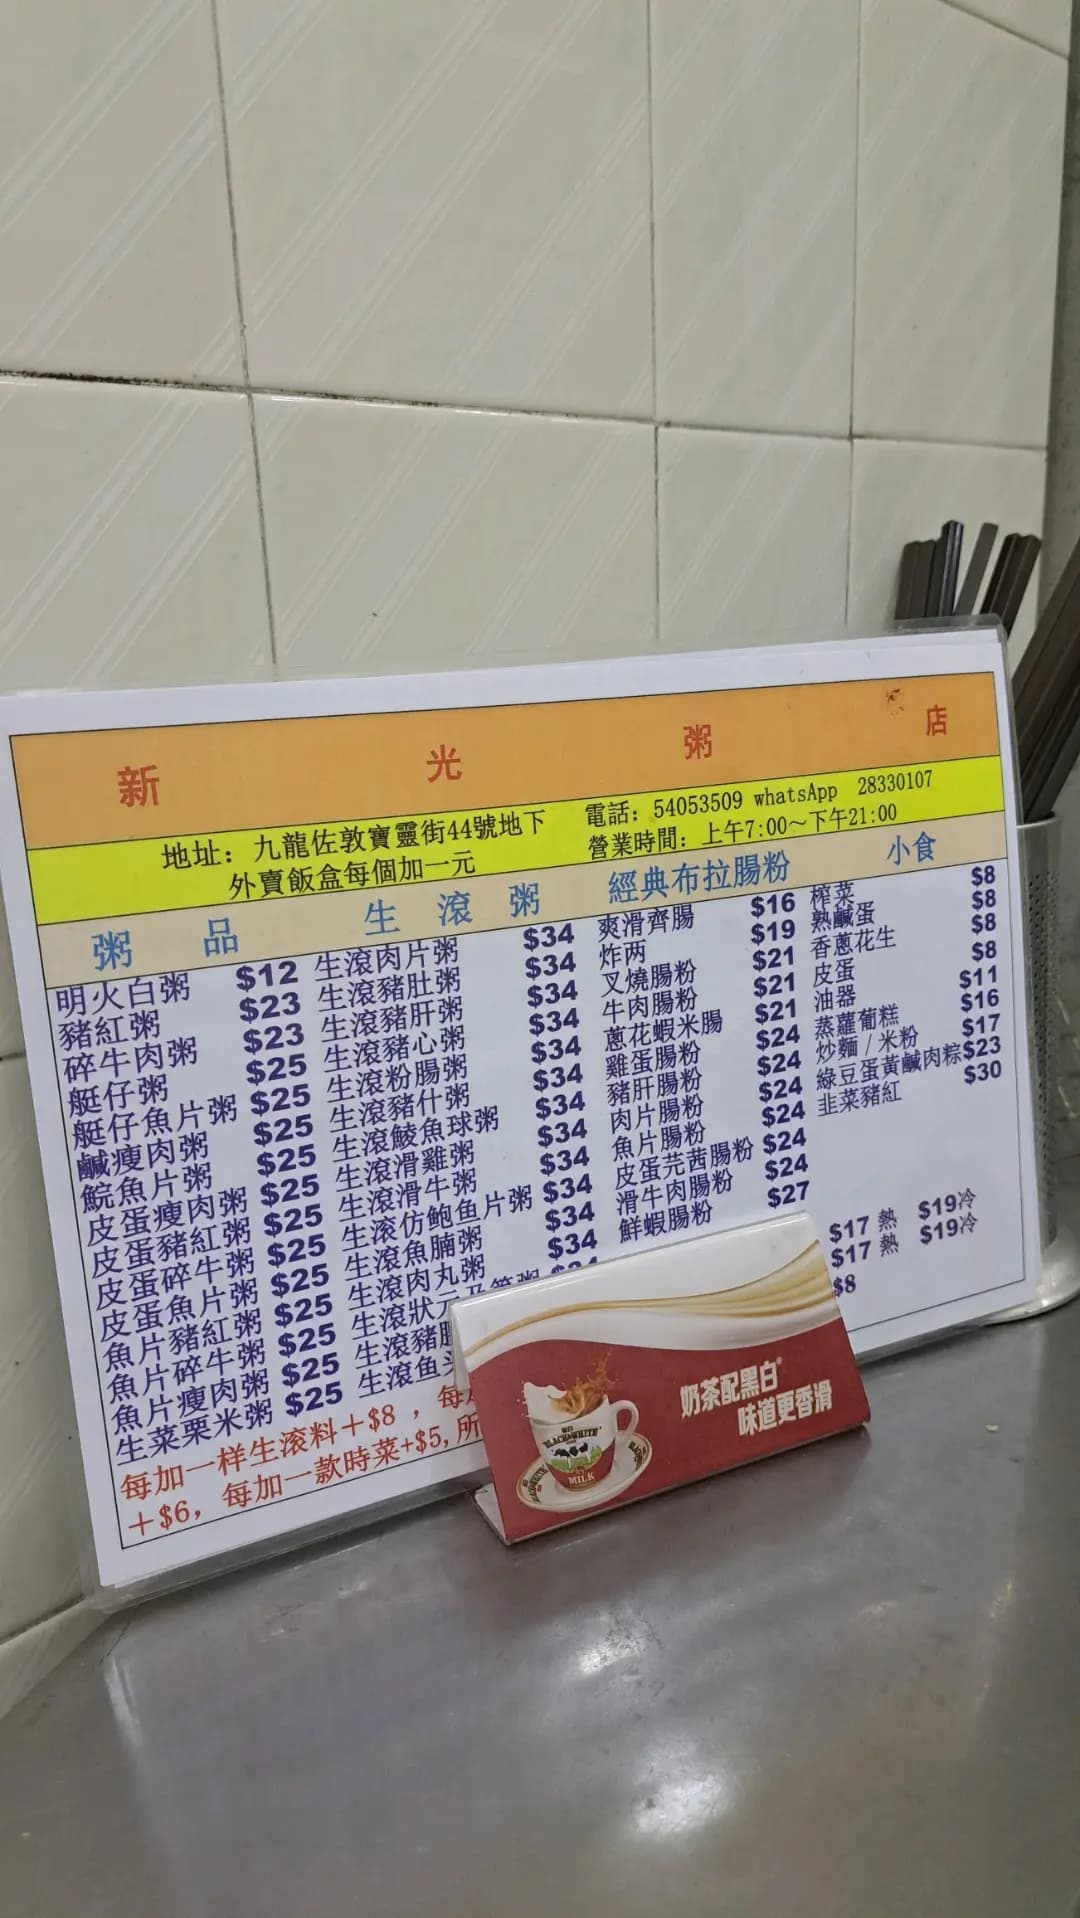 新光粥店
地址：九龍佐敦寶靈街44號地下
外賣飯盒每個加一元
電話：54053509 whatsApp 28330107
營業時間：上午7:00～下午21:00
粥品
明火白粥 $12
豬紅粥 $23
碎牛肉粥 $23
艇仔粥 $25
艇仔魚片粥 $25
鹹瘦肉粥 $25
鯇魚片粥 $25
皮蛋瘦肉粥 $25
皮蛋豬紅粥 $25
皮蛋碎牛粥 $25
皮蛋魚片粥 $25
魚片豬紅粥 $25
魚片碎牛粥 $25
魚片瘦肉粥 $25
生菜粟米粥 $25
生滾粥
生滾肉片粥 $34
生滾豬肚粥 $34
生滾豬肝粥 $34
生滾豬心粥 $34
生滾粉腸粥 $34
生滾豬什粥 $34
生滾鯪魚球粥 $34
生滾滑雞粥 $34
生滾滑牛粥 $34
生滚仿鲍鱼片粥 $34
生滾魚腩粥 $34
生滾肉丸粥 $34
生滾狀元及第粥
生滾豬
生滾鱼
經典布拉腸粉
爽滑齊腸 $16
炸两 $19
叉燒腸粉 $21
牛肉腸粉 $21
蔥花蝦米腸 $21
雞蛋腸粉 $24
豬肝腸粉 $24
肉片腸粉 $24
魚片腸粉 $24
皮蛋芫茜腸粉 $24
滑牛肉腸粉 $24
鮮蝦腸粉 $27
小食
榨菜 $8
熟鹹蛋 $8
香蔥花生 $8
皮蛋 $8
油器 $11
蒸蘿蔔糕 $16
炒麵/米粉 $17
綠豆蛋黃鹹肉粽 $23
韭菜豬紅 $30
$17 熱 $19冷
$17 熱 $19冷
$8
每加一样生滚料＋$8，每
＋$6，每加一款時菜+$5,所
奶茶配黑白®
味道更香滑
BLACK&WHITE
MILK